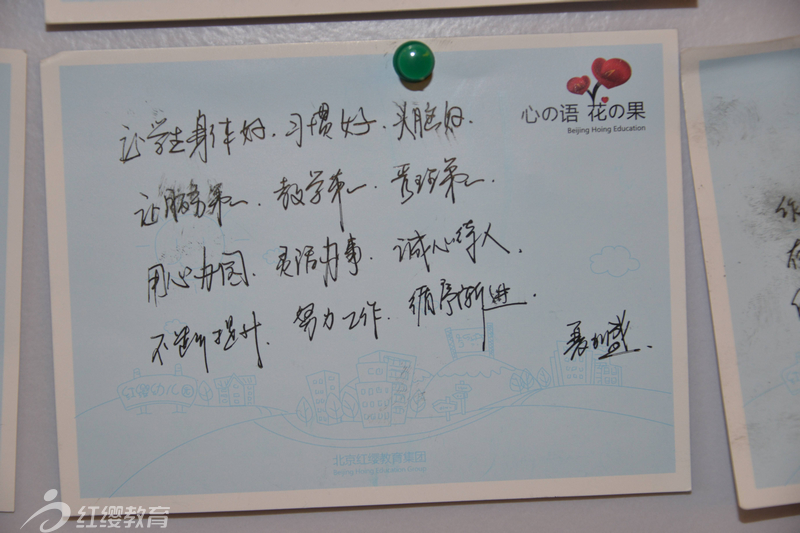 心の语 花の果
Beijing Hoing Education
让学生身体好、习惯好、头脑好、
让服务第一、教学第一、管理第一、
用心办园、灵活办事、诚心待人、
不断提升、努力工作、循序渐进、
红缨幼儿园
北京红缨教育集团
Beijing Hoing Education Group
红缨教育